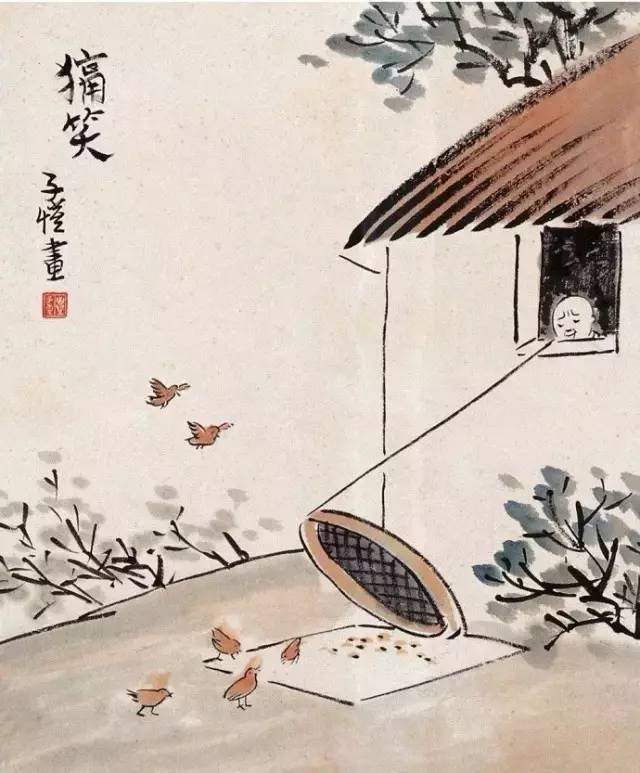 笑
子愷畫